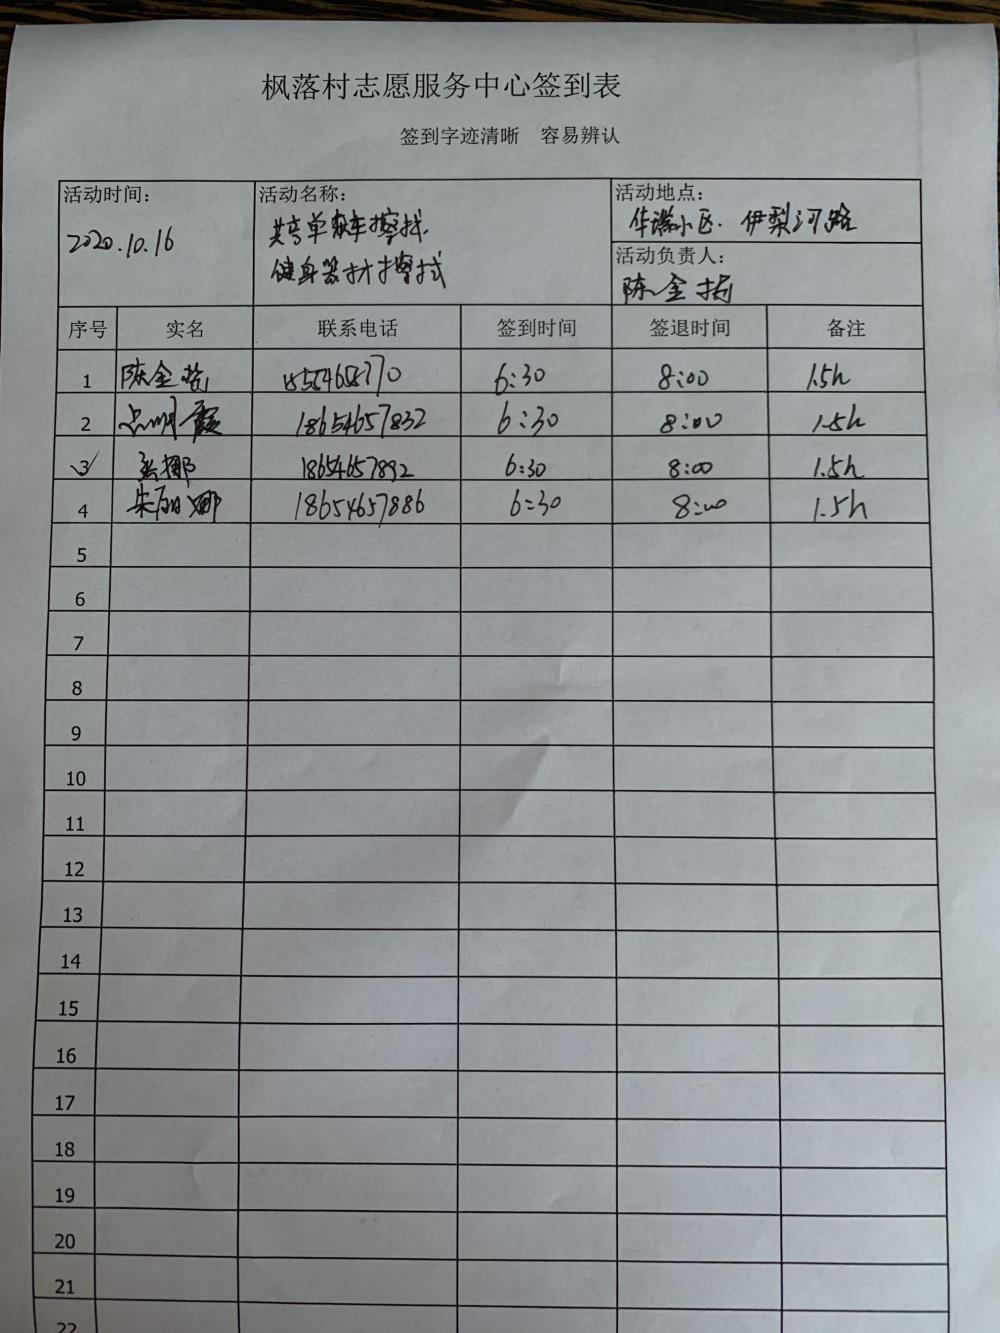 枫落村志愿服务中心签到表
签到字迹清晰 容易辨认
活动时间: 活动名称: 活动地点:
2020.10.16 共享单车擦拭 华瑞小区 伊犁河路
健身器材擦拭 活动负责人:
陈金
序号 实名 联系电话 签到时间 签退时间 备注
1 陈金 6:30 8:00 1.5h
2 明霞 18654657832 6:30 8:00 1.5h
3 张娜 18654657892 6:30 8:00 1.5h
4 朱丽娜 18654657886 6:30 8:00 1.5h
5
6
7
8
9
10
11
12
13
14
15
16
17
18
19
20
21
22